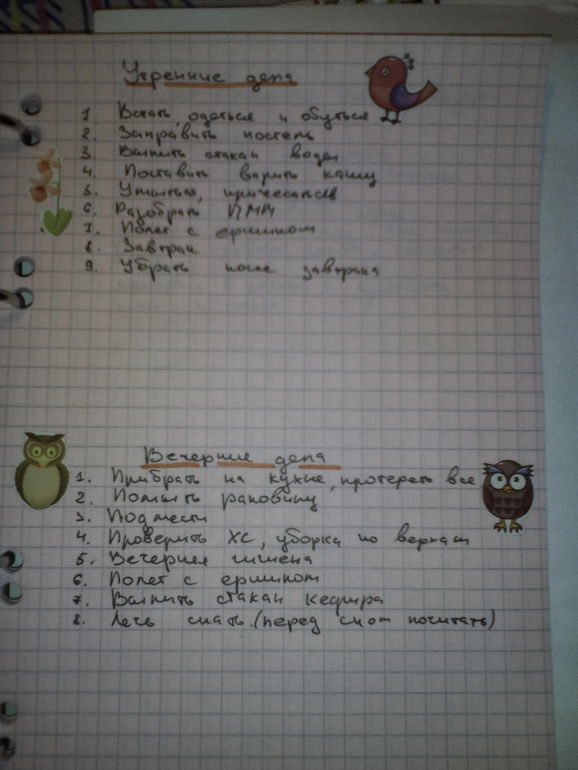 Утренние дела
1. Встать, одеться и обуться
2. Заправить постель
3. Выпить стакан воды
4. Поставить варить кашу
5. Умытьс, причесаться
6. Разобрать ПММ
7. Полет с ершиком
8. Завтрак
9. Убрать после завтрака
Вечерние дела
1. Прибрать на кухне, протереть все
2. Помыть раковину
3. Подмести
4. Проверить ХС, уборка по верхам
5. Вечерняя гигиена
6. Полет с ершиком
7. Выпить стакан кефира
8. Лечь спать. (перед сном почитать)